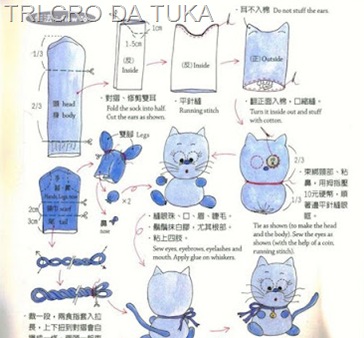 TRI CRO DA TUKA
1/3
2/3
頭 head
身 body
1cm
1.5cm
(反)
Inside
(反)Inside
(正)Outside
・耳不入棉。Do not stuff the ears.
・對摺、修剪雙耳
Fold the sock into half.
Cut the ears as shown.
・平針縫
Running stitch
・翻正面入棉，口縮縫。
Turn it inside out and stuff
with cotton.
・雙腳 Legs
×2
鼻
nose
2cm
3cm
・縫眼珠、口、眉、睫毛。
鬍鬚抹白膠，尤其根部。
・粘上四肢。
Sew eyes, eyebrows, eyelashes and
mouth. Apply glue on whiskers.
2/3
1/3
・束綁頸部、粘
鼻，用拇指壓
10元硬幣，順
著邊平針縫眼
眶。
Tie as shown (to make the head
and the body). Sew the eyes as
shown (with the help of a coin.
running stitch).
・裁一段，兩食指套入拉
長，上下扭到對摺會自